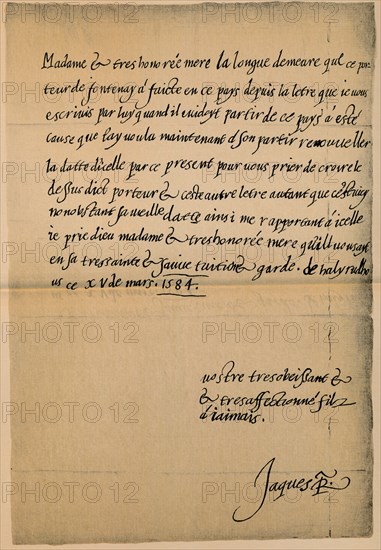 Madame & treshonorée mere la longue demeure que ce por
teur de fontenay a faicte en ce pays depuis la letre que ie vous
escriuis par luy quand il cuidoyt partir de ce pays à esté
cause que iay voulu maintenant a son partir renouueller
la datte dicelle par ce present pour vous prier de croyre le
dessus dict porteur & ceste autre letre autant que
nonobstant sa vielle datte ainsi me rapportant à icelle
ie prie dieu madame & treshonorée mere quil vous ayt
en sa tressainte & sauue tuition & garde. de halyrudho
us ce xv de mars. 1584.
vostre tresobeissant &
& tresaffectionné filz
à iaimais.
Jaques R.
PHOTO 12